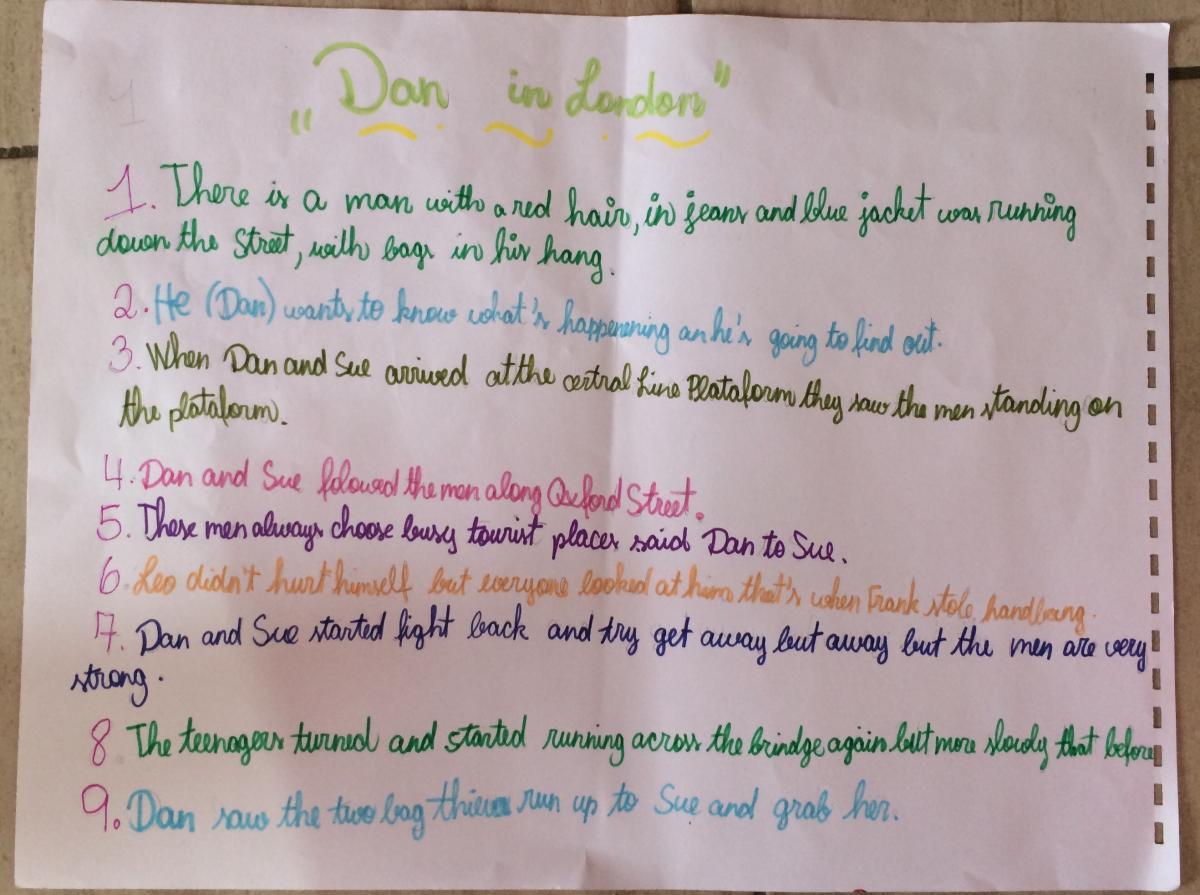 „Dan in London"
1. There is a man with a red hair, in jeans and blue jacket was running
down the Street, with bags in his hang.
2. He (Dan) wants to know what's happenening an he's going to find out.
3. When Dan and Sue arrived at the central Line Plataform they saw the men standing on
the plataform.
4. Dan and Sue foloued the men along Oxford Street.
5. These men always choose busy tourist places said Dan to Sue.
6. Leo didn't hurt himself but everyone looked at him that's when Frank stole handbang.
7. Dan and Sue started fight back and try get away but away but the men are very
strong.
8 The teenagers turned and started running across the brindge again but more slowly that before
9. Dan saw the two bag thieves run up to Sue and grab her.